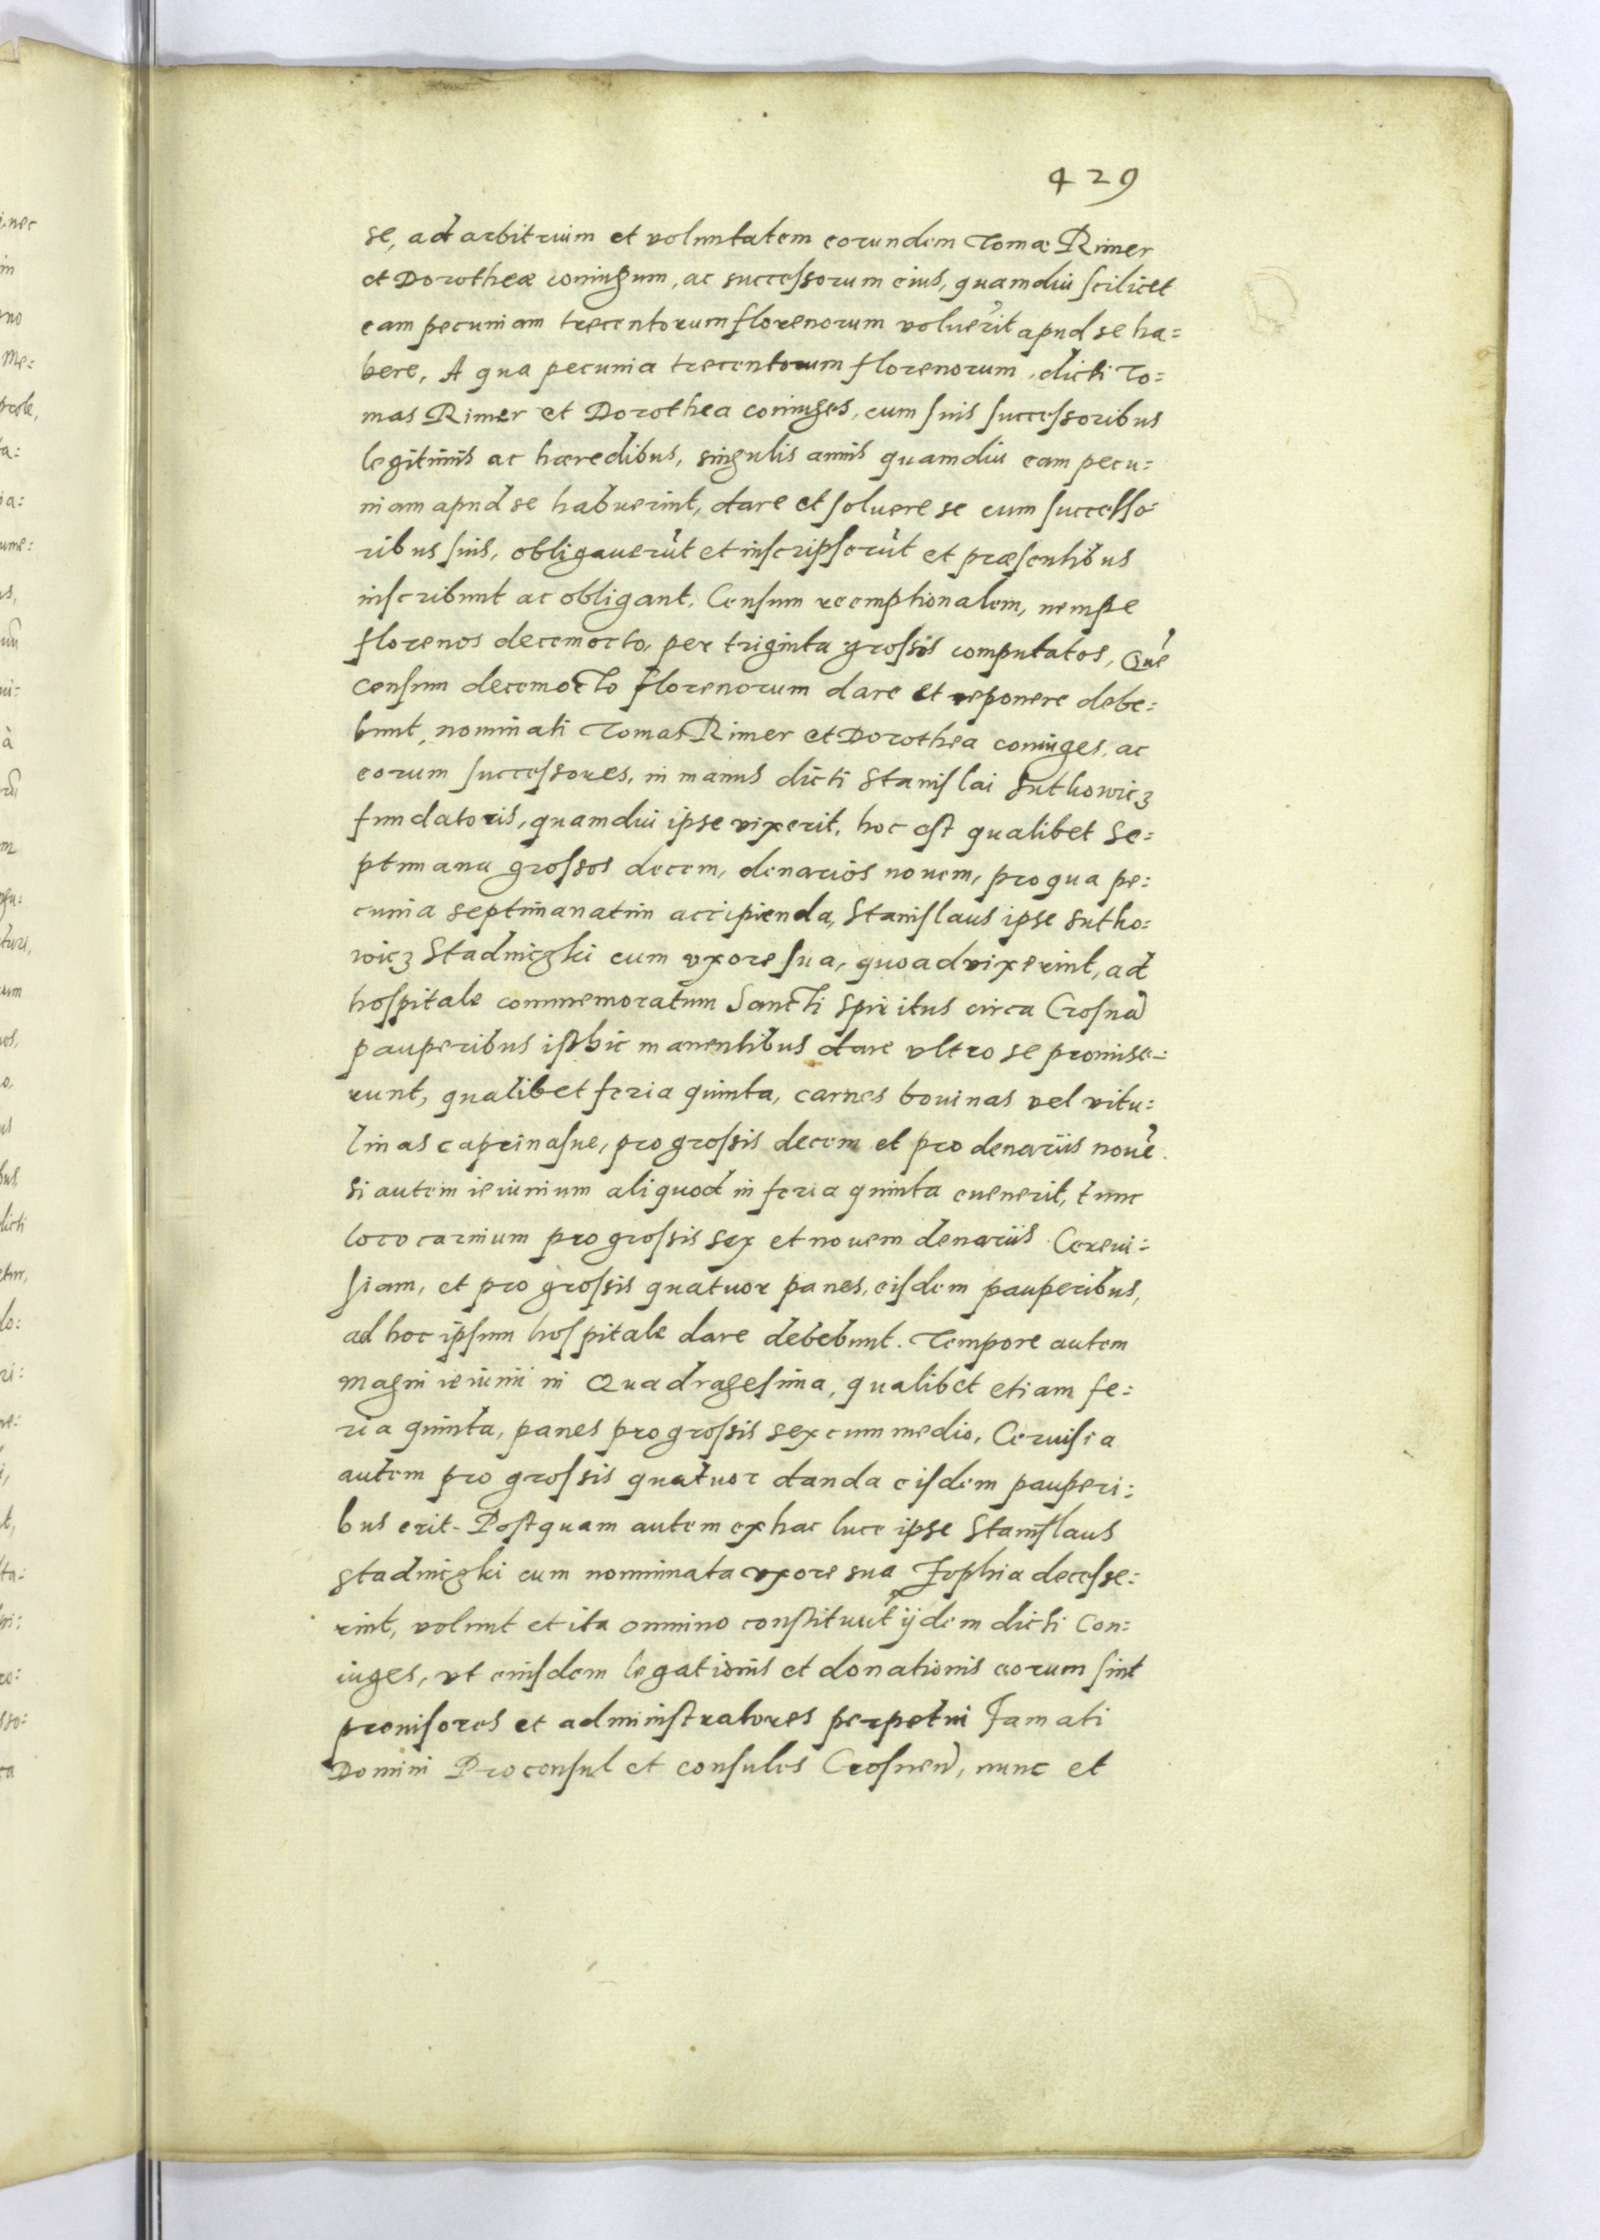 429
se, ad arbitrium et voluntatem eorundem Tomæ Rimer
et Dorotheæ coniugum, ac successorum eius, quamdiu scilicet
eam pecuniam trecentorum florenorum voluerĩt apud se ha=
bere, A qua pecunia trecentorum florenorum, dicti To=
mas Rimer et Dorothea coniuges, cum suis successoribus
legitimis ac hæredibus, singulis annis quamdiu eam pecu=
niam apud se habuerint, dare et soluere se cum successo=
ribus suis, obligauerũt et inscripserũt et præsentibus
inscribunt ac obligant, Censum reemptionalem, nempe
florenos decemocto, per triginta grossos computatos, Quẽ
censum decemocto florenorum dare et reponere debe=
bunt, nominati Tomas Rimer et Dorothea coniuges, ac
eorum successores, in manus dicti Stanislai Suthowicz
fundatoris, quamdiu ipse vixerit, hoc est qualibet Se=
ptimana grossos decem, denarios nouem, pro qua pe=
cunia septimanatim accipienda, Stanislaus ipse Sutho=
wicz Stadniczki cum vxore sua, quoad vixerint, ad
hospitale commemoratum Sancti Spiritus circa Crosnã
pauperibus isthic manentibus dare vltro se promise=
runt, qualibet feria quinta, carnes bouinas vel vitu=
linas caprinasue, pro grossis decem et pro denariis nouẽ.
Si autem ieiunium aliquod in feria quinta euenerit, tunc
loco carnium pro grossis sex et nouem denariis Cereui=
siam, et pro grossis quatuor panes, eisdem pauperibus,
ad hoc ipsum hospitale dare debebunt. Tempore autem
magni ieiunii in Quadragesima, qualibet etiam fe=
ria quinta, panes pro grossis sex cum medio, Ceruisia
autem pro grossis quatuor danda eisdem pauperi=
bus erit. Postquam autem ex hac luce ipse Stanislaus
Stadniczki cum nominata vxore sua Zophia decesse=
rint, volunt et ita omnino constituũt ijdem dicti Con=
iuges, vt eiusdem legationis et donationis eorum sint
prouisores et administratores perpetui Famati
Domini Proconsul et consules Crosneñ, nunc et